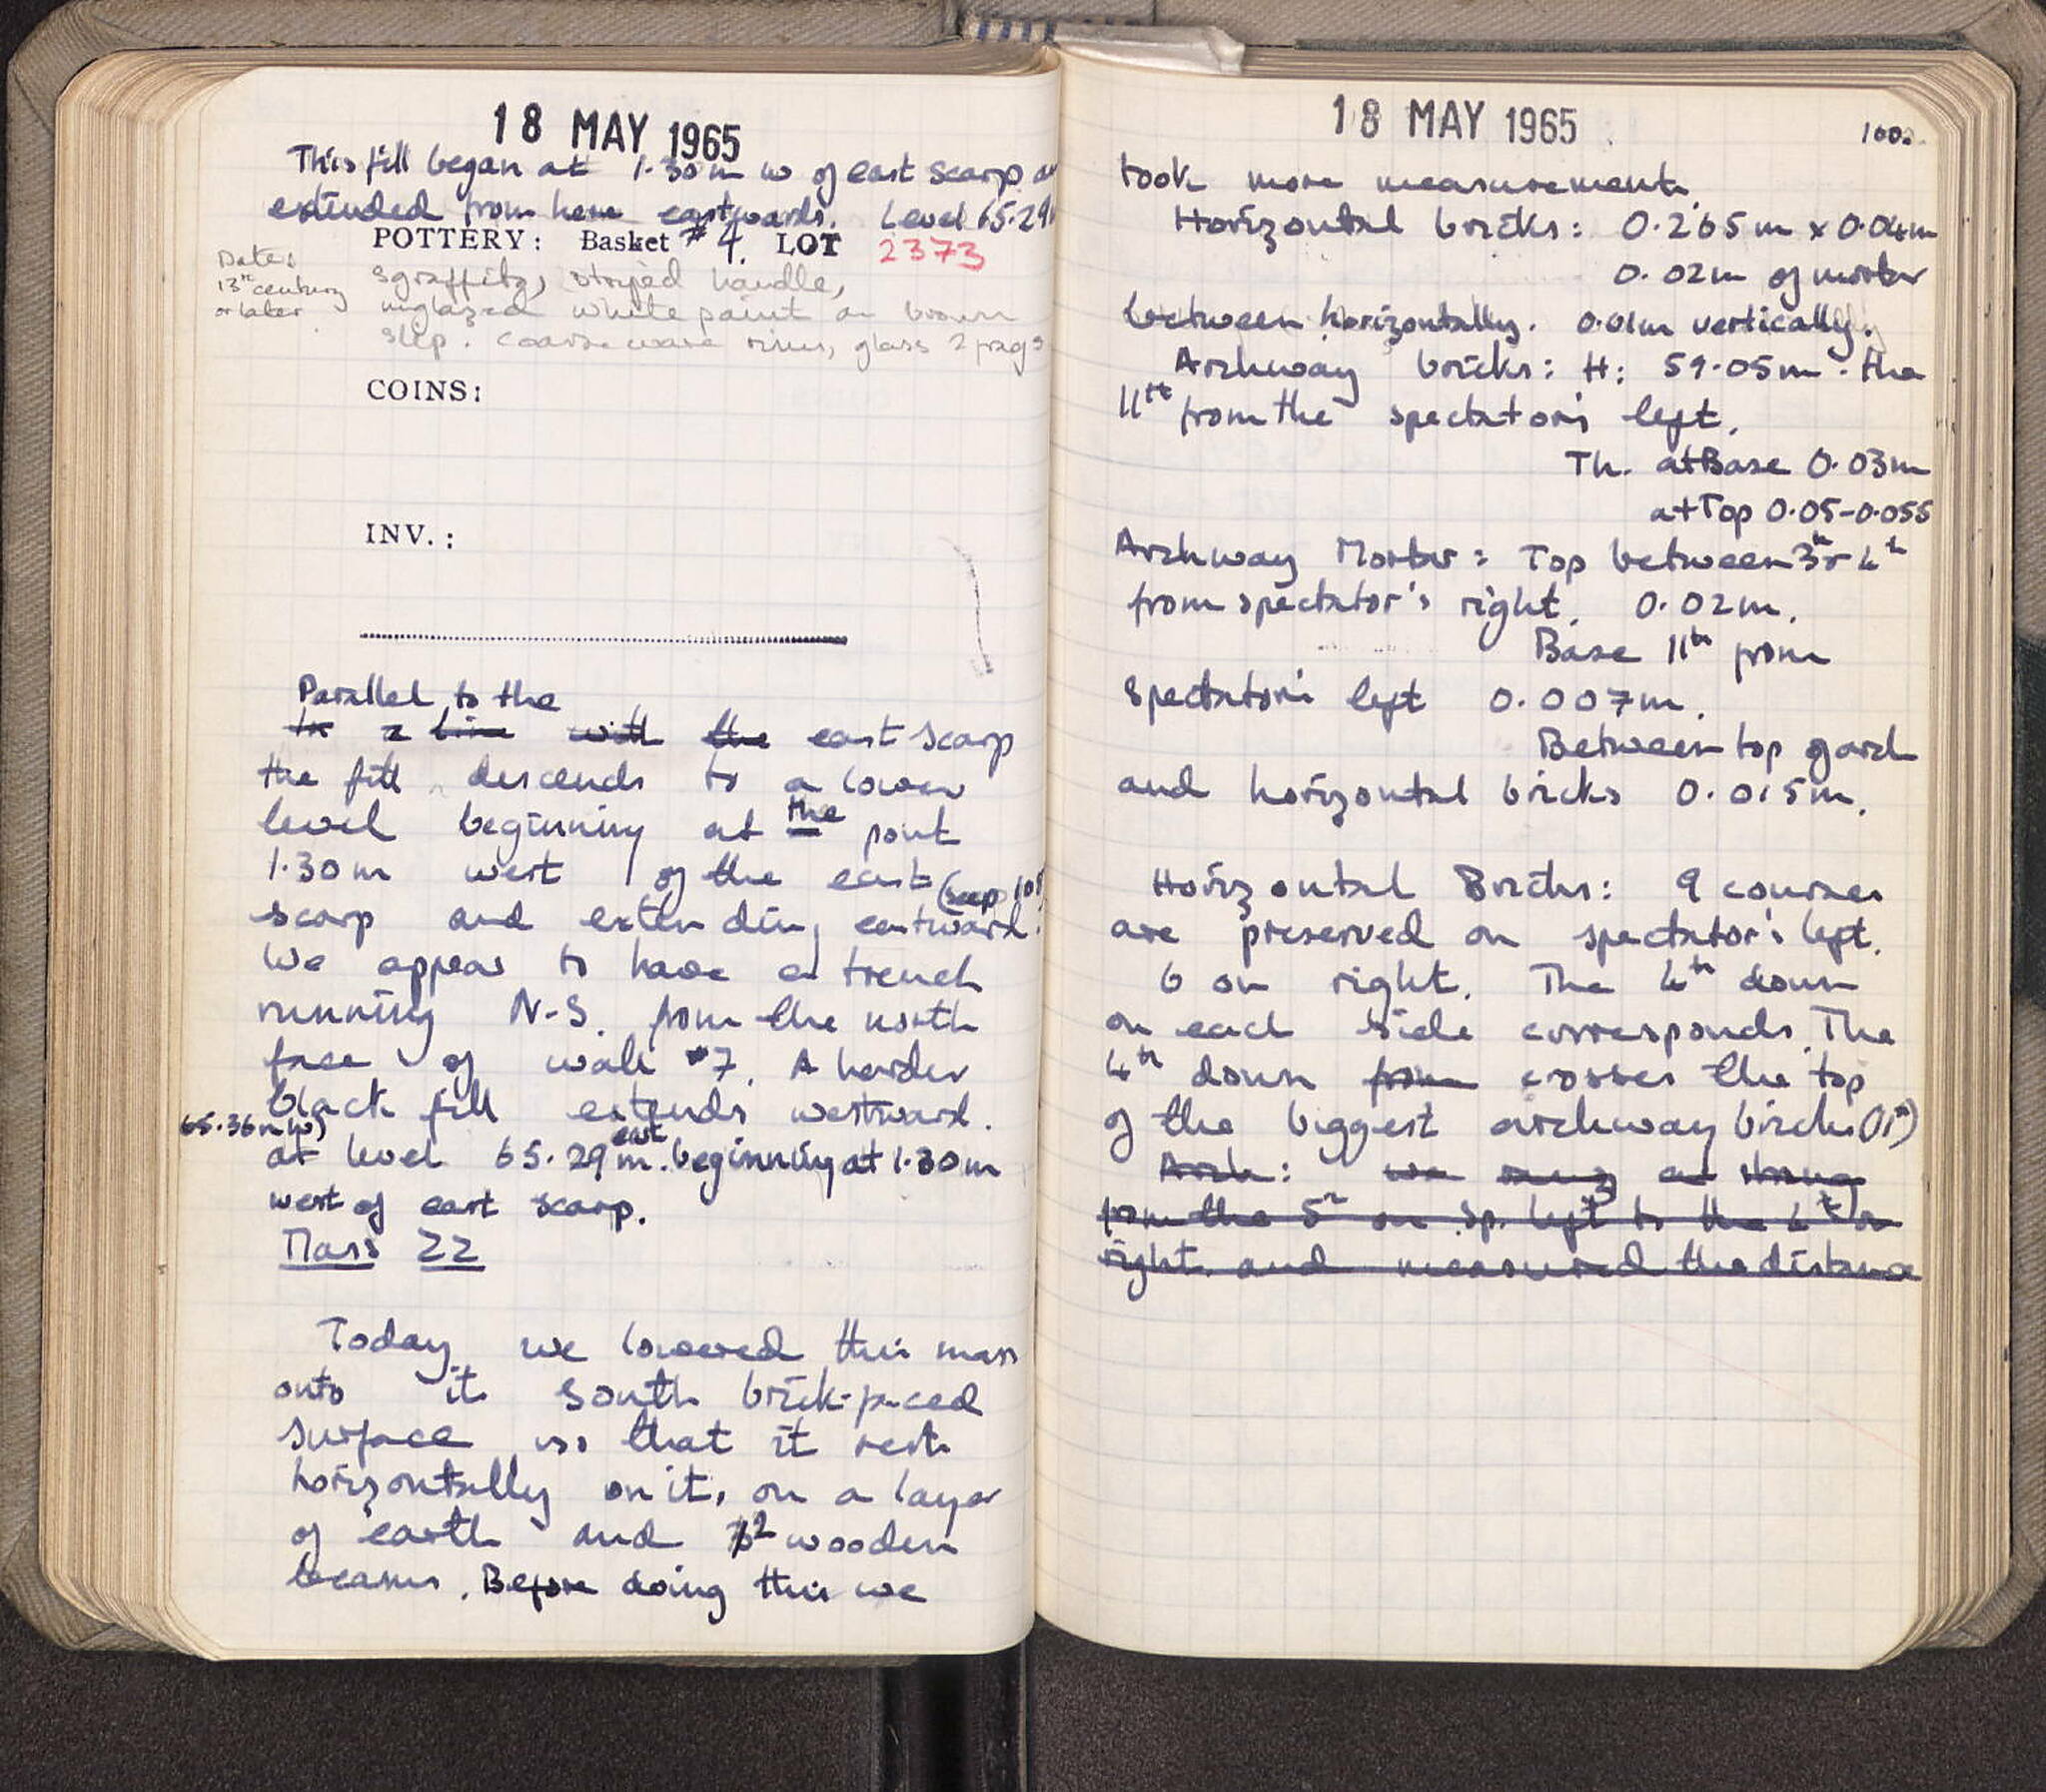 18 MAY 1965
This fill began at 1.30m w of east scarp
extended from here eastwards. Level 65.29
POTTERY: Basket #4. LOT 2373
Date:
13th century
or later
sgraffito, striped handle,
unglazed white paint on brown
slip. coarse ware rims, glass 2 frags
COINS:
INV.:
Parallel to the
In a line with the east scarp
the fill descends to a lower
level beginning at the point
1.30m west of the east (see p 101)
scarp and extending eastward.
We appear to have a trench
running N-S. from the north
face of wall #7. A harder
black fill extends westward.
65.36m
at level 65.29m. east beginning at 1.30m
west of east scarp.
Mass 22
Today we lowered this mass
onto its south brick-faced
surface so that it rests
horizontally on it, on a layer
of earth and 2 wooden
beams. Before doing this we
18 MAY 1965
100.
took more measurements.
Horizontal bricks: 0.265m x 0.04m
0.02m of mortar
between horizontally. 0.01m vertically.
Archway bricks: H: 59.05m. the
11th from the spectator's left.
Th. at Base 0.03m
at Top 0.05-0.055
Archway Mortar: Top between 3rd 4th
from spectator's right. 0.02m.
Base 11th from
spectator's left 0.007m.
Between top of arch
and horizontal bricks 0.015m.
Horizontal Bricks: 9 courses
are preserved on spectator's left.
6 on right. The 4th down
on each side corresponds. The
4th down from crosses the top
of the biggest archway bricks (11th)
Arch: we a string
from the 5th on sp. left to the 4th on
right and measured the distance